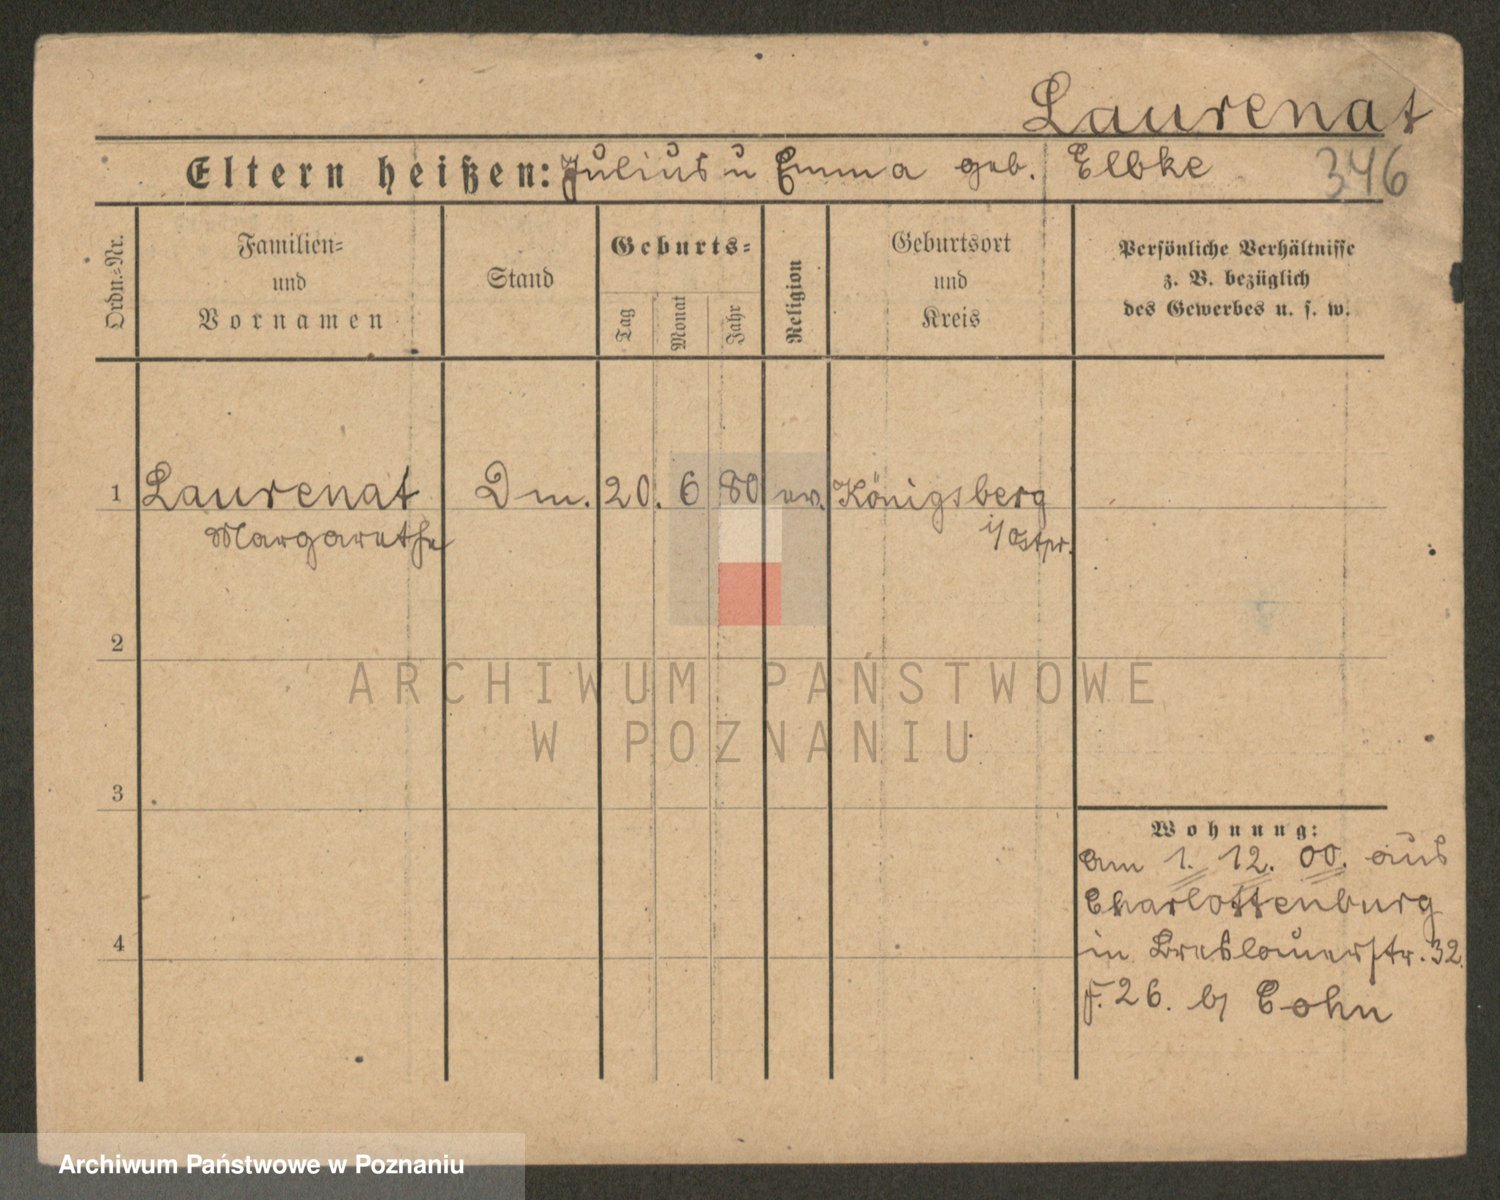 Laurenat
Eltern heißen: Julius u Emma geb. Elbke
346
Ordn.=Nr.
Familien=
und
Vornamen
Stand
Geburts=
Tag
Monat
Jahr
Religion
Geburtsort
und
Kreis
Persönliche Verhältnisse
z. B. bezüglich
des Gewerbes u. s. w.
1 Laurenat Dm. 20. 6 80 ev. Königsberg
Margarethe i/Ostpr.
2
ARCHIWUM PAŃSTWOWE
W POZNANIU
3
Wohnung:
am 1. 12. 00. aus
Charlottenburg
4
in Breslauerstr. 32.
F. 26. b/ Cohn
Archiwum Państwowe w Poznaniu